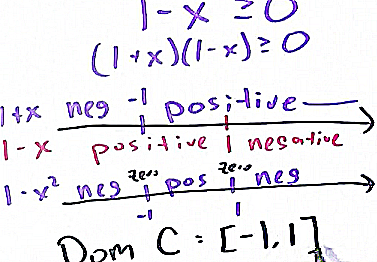 1 - x ≥ 0
(1+x)(1-x) ≥ 0
1+x neg -1 positive
1-x positive 1 negative
zero zero
1-x² neg pos neg
-1 1
Dom C = [-1,1]